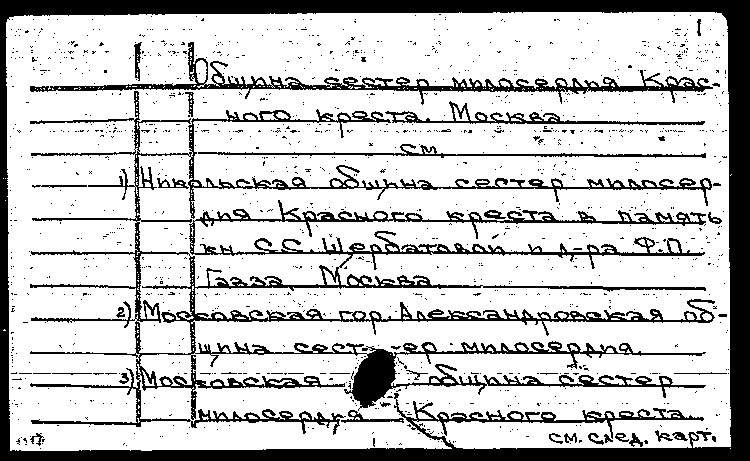 1
Община сестер милосердия Крас-
ного креста. Москва
см.
1) Никольская община сестер милосер-
дия Красного креста в память
кн. С.С. Щербатовой и д-ра Ф.П.
Гааза. Москва.
2) Московская гор. Александровская об-
щина сест-ер милосердия.
3) Московская община сестер
милосердия Красного креста.
см. след. карт.